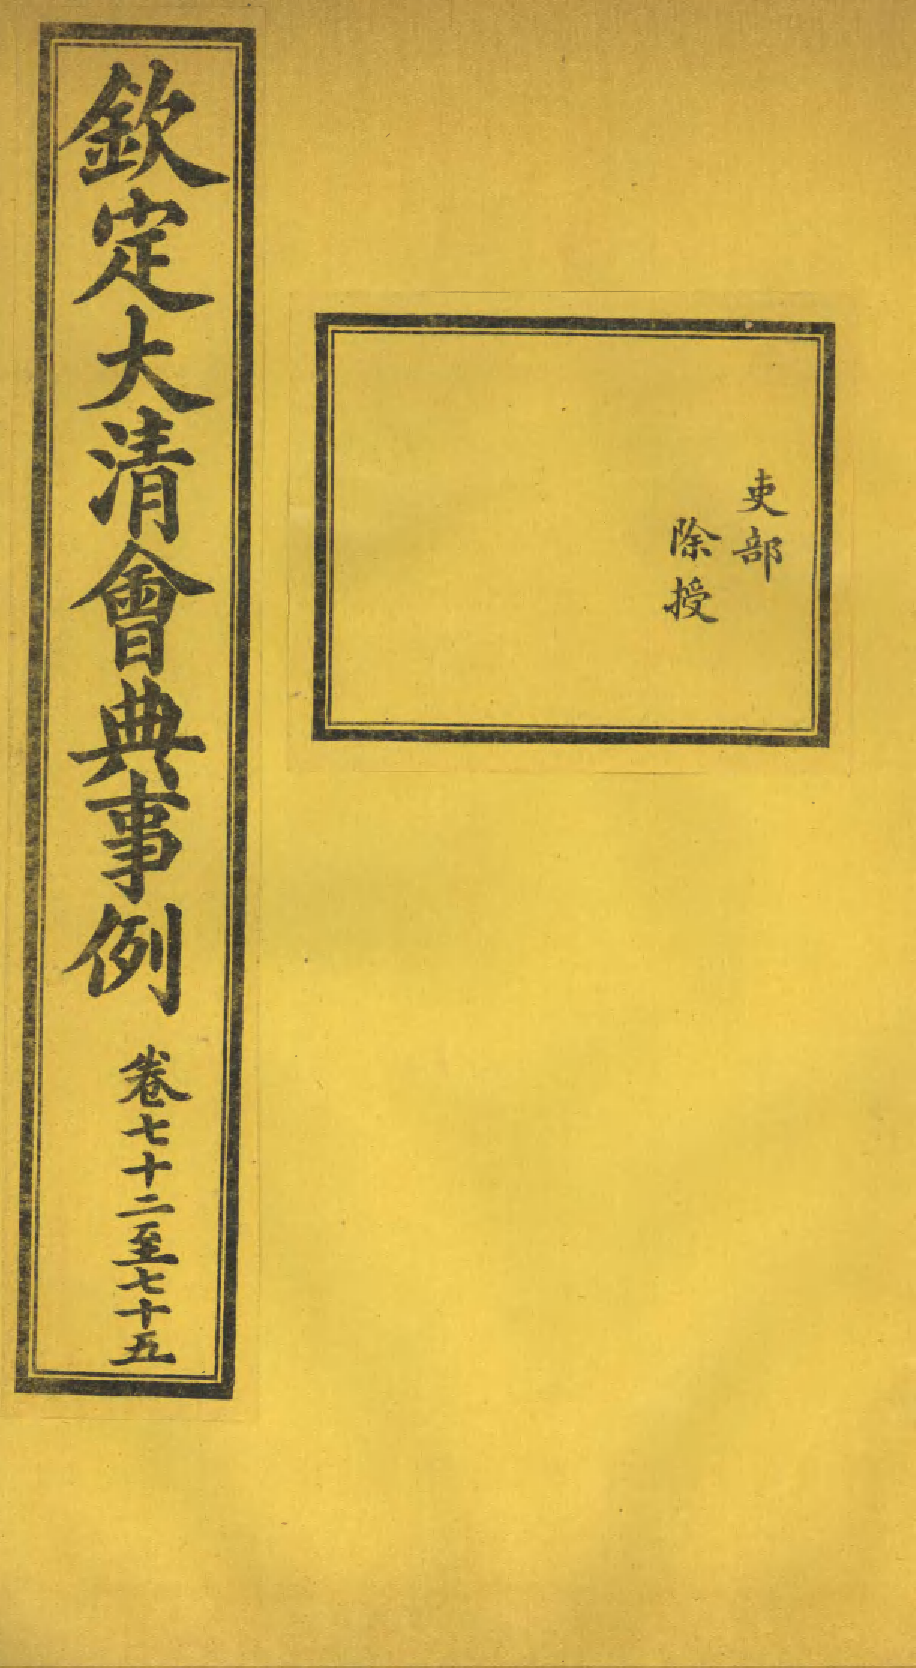 欽定大清會典事例 卷七十二至七十五
吏部
除授